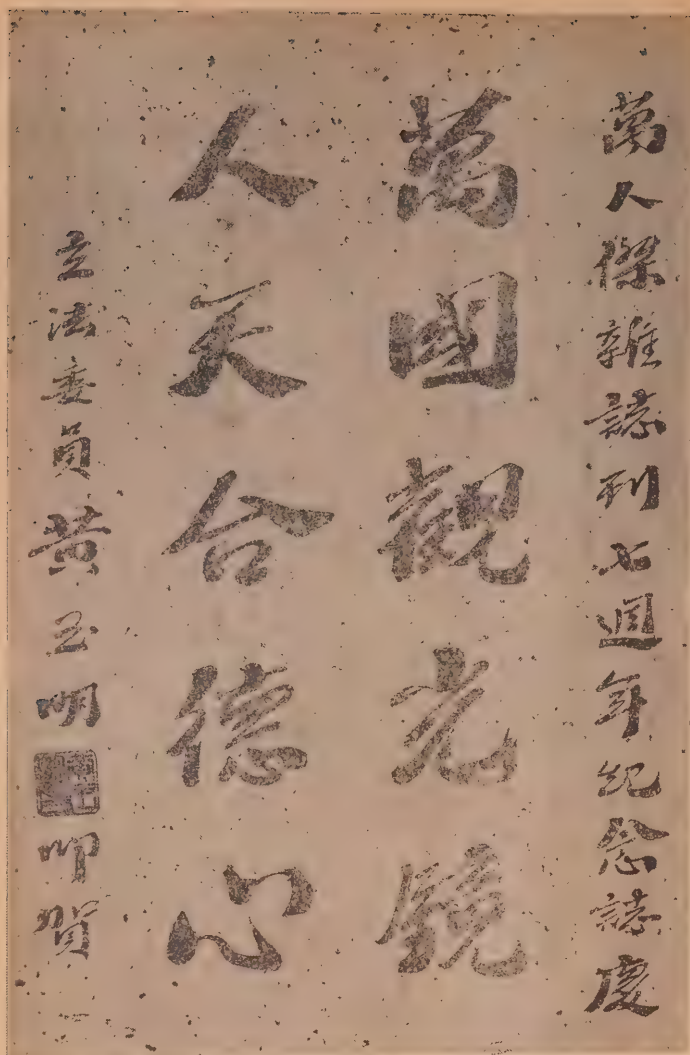 萬人傑雜誌刊七週年紀念誌慶
萬國觀光鏡
人天合德心
立法委員黃玉明叩賀